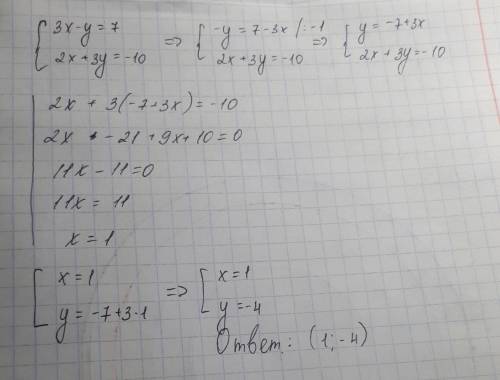 { 3x-y=7 => { -y=7-3x |:-1 => { y=-7+3x
2x+3y=-10 2x+3y=-10 2x+3y=-10
2x + 3(-7+3x)=-10
2x - 21 + 9x+10=0
11x-11=0
11x= 11
x=1
[ x=1 => [ x=1
y=-7+3·1 y=-4
Ответ: (1;-4)